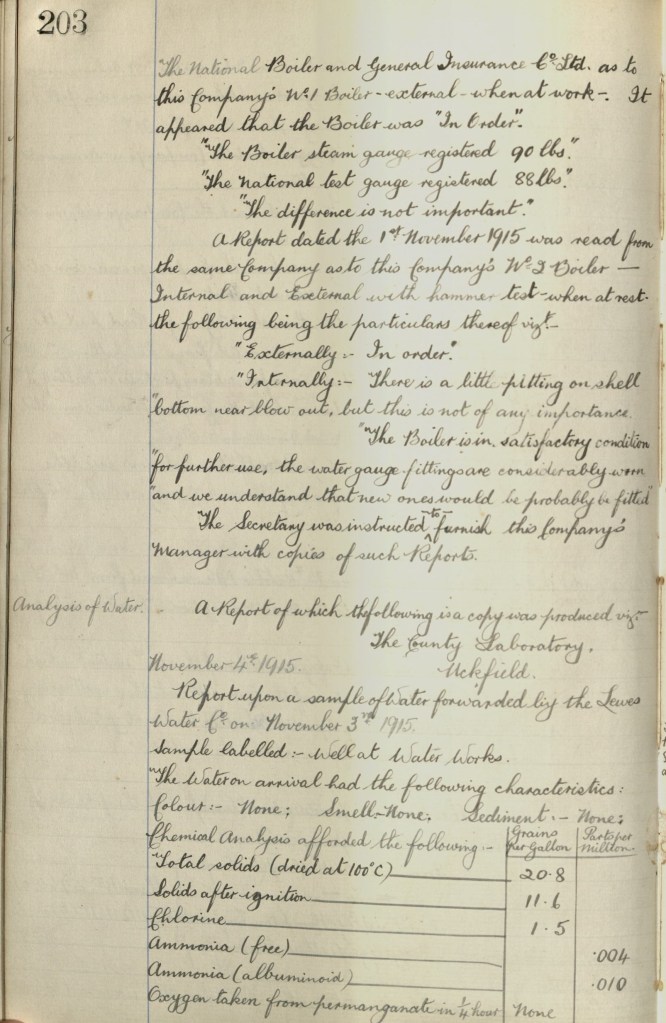 203
"The National Boiler and General Insurance Co. Ltd. as to
this Company's No. 1 Boiler - external - when at work -. It
appeared that the Boiler was "In Order".
""The Boiler steam gauge registered 90 lbs."
"The National test gauge registered 88 lbs."
"The difference is not important."
A Report dated the 1st November 1915 was read from
the same Company as to this Company's No. 2 Boiler —
Internal and External with hammer test - when at rest.
the following being the particulars thereof vizt.-
"Externally:- In order".
"Internally:- There is a little pitting on shell
"bottom near blow out, but this is not of any importance.
""The Boiler is in satisfactory condition
"for further use, the water gauge fittings are considerably worn
"and we understand that new ones would be probably be fitted"
The Secretary was instructed to furnish this Company's
Manager with copies of such Reports.
Analysis of Water.
A Report of which the following is a copy was produced vizt.-
The County Laboratory,
Uckfield.
November 4th. 1915.
Report upon a sample of Water forwarded by the Lewes
Water Co. on November 3rd 1915.
Sample labelled:- Well at Water Works.
"The Water on arrival had the following characteristics:
Colour:- None; Smell:- None; Sediment:- None;
Chemical Analysis afforded the following:- Grains per Gallon Parts per million.
"Total solids (dried at 100°C) 20.8
Solids after ignition 11.6
Chlorine 1.5
Ammonia (free) .004
Ammonia (albuminoid) .010
Oxygen taken from permanganate in 1/4 hour None